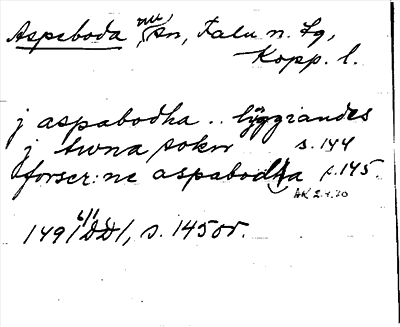 Aspeboda nu, sn, Falu n. fg,
Kopp. l.
j aspabodha .. liggiandes
j twna sokn s. 144
forscr: ne aspabodha s. 145.
AK 2.4.70
1491 6/1 DD1, s. 145 or.